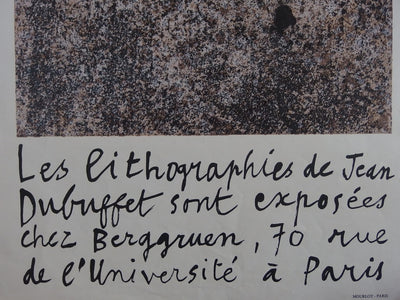 Les lithographies de Jean
Dubuffet sont exposées
chez Berggruen, 70 rue
de l'Université à Paris
MOURLOT - PARIS